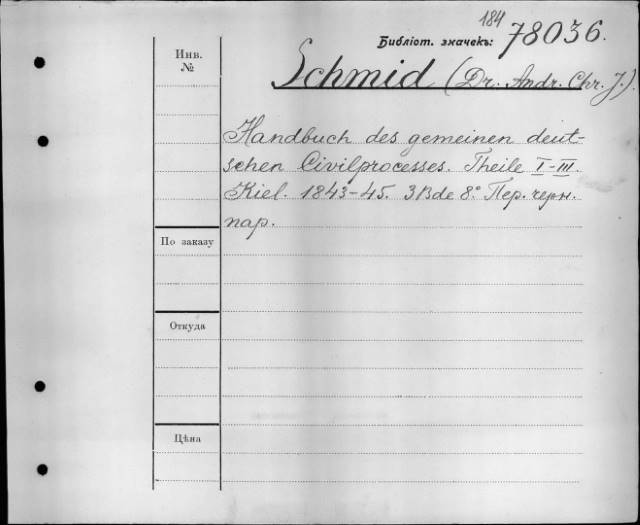 184
Библіот. значекъ: 78036.
Инв.
№
Schmid (Dr. Andr. Chr. J.).
Handbuch des gemeinen deut-
schen Civilprocesses. Theile I-III.
Kiel. 1843-45. 3 Bde 8° Пер. черн.
пар.
По заказу
Откуда
Цѣна